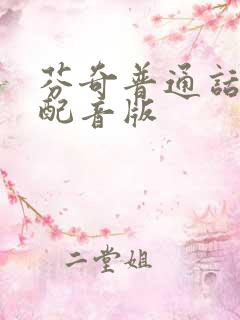 芬奇普通话
配音版
二堂姐